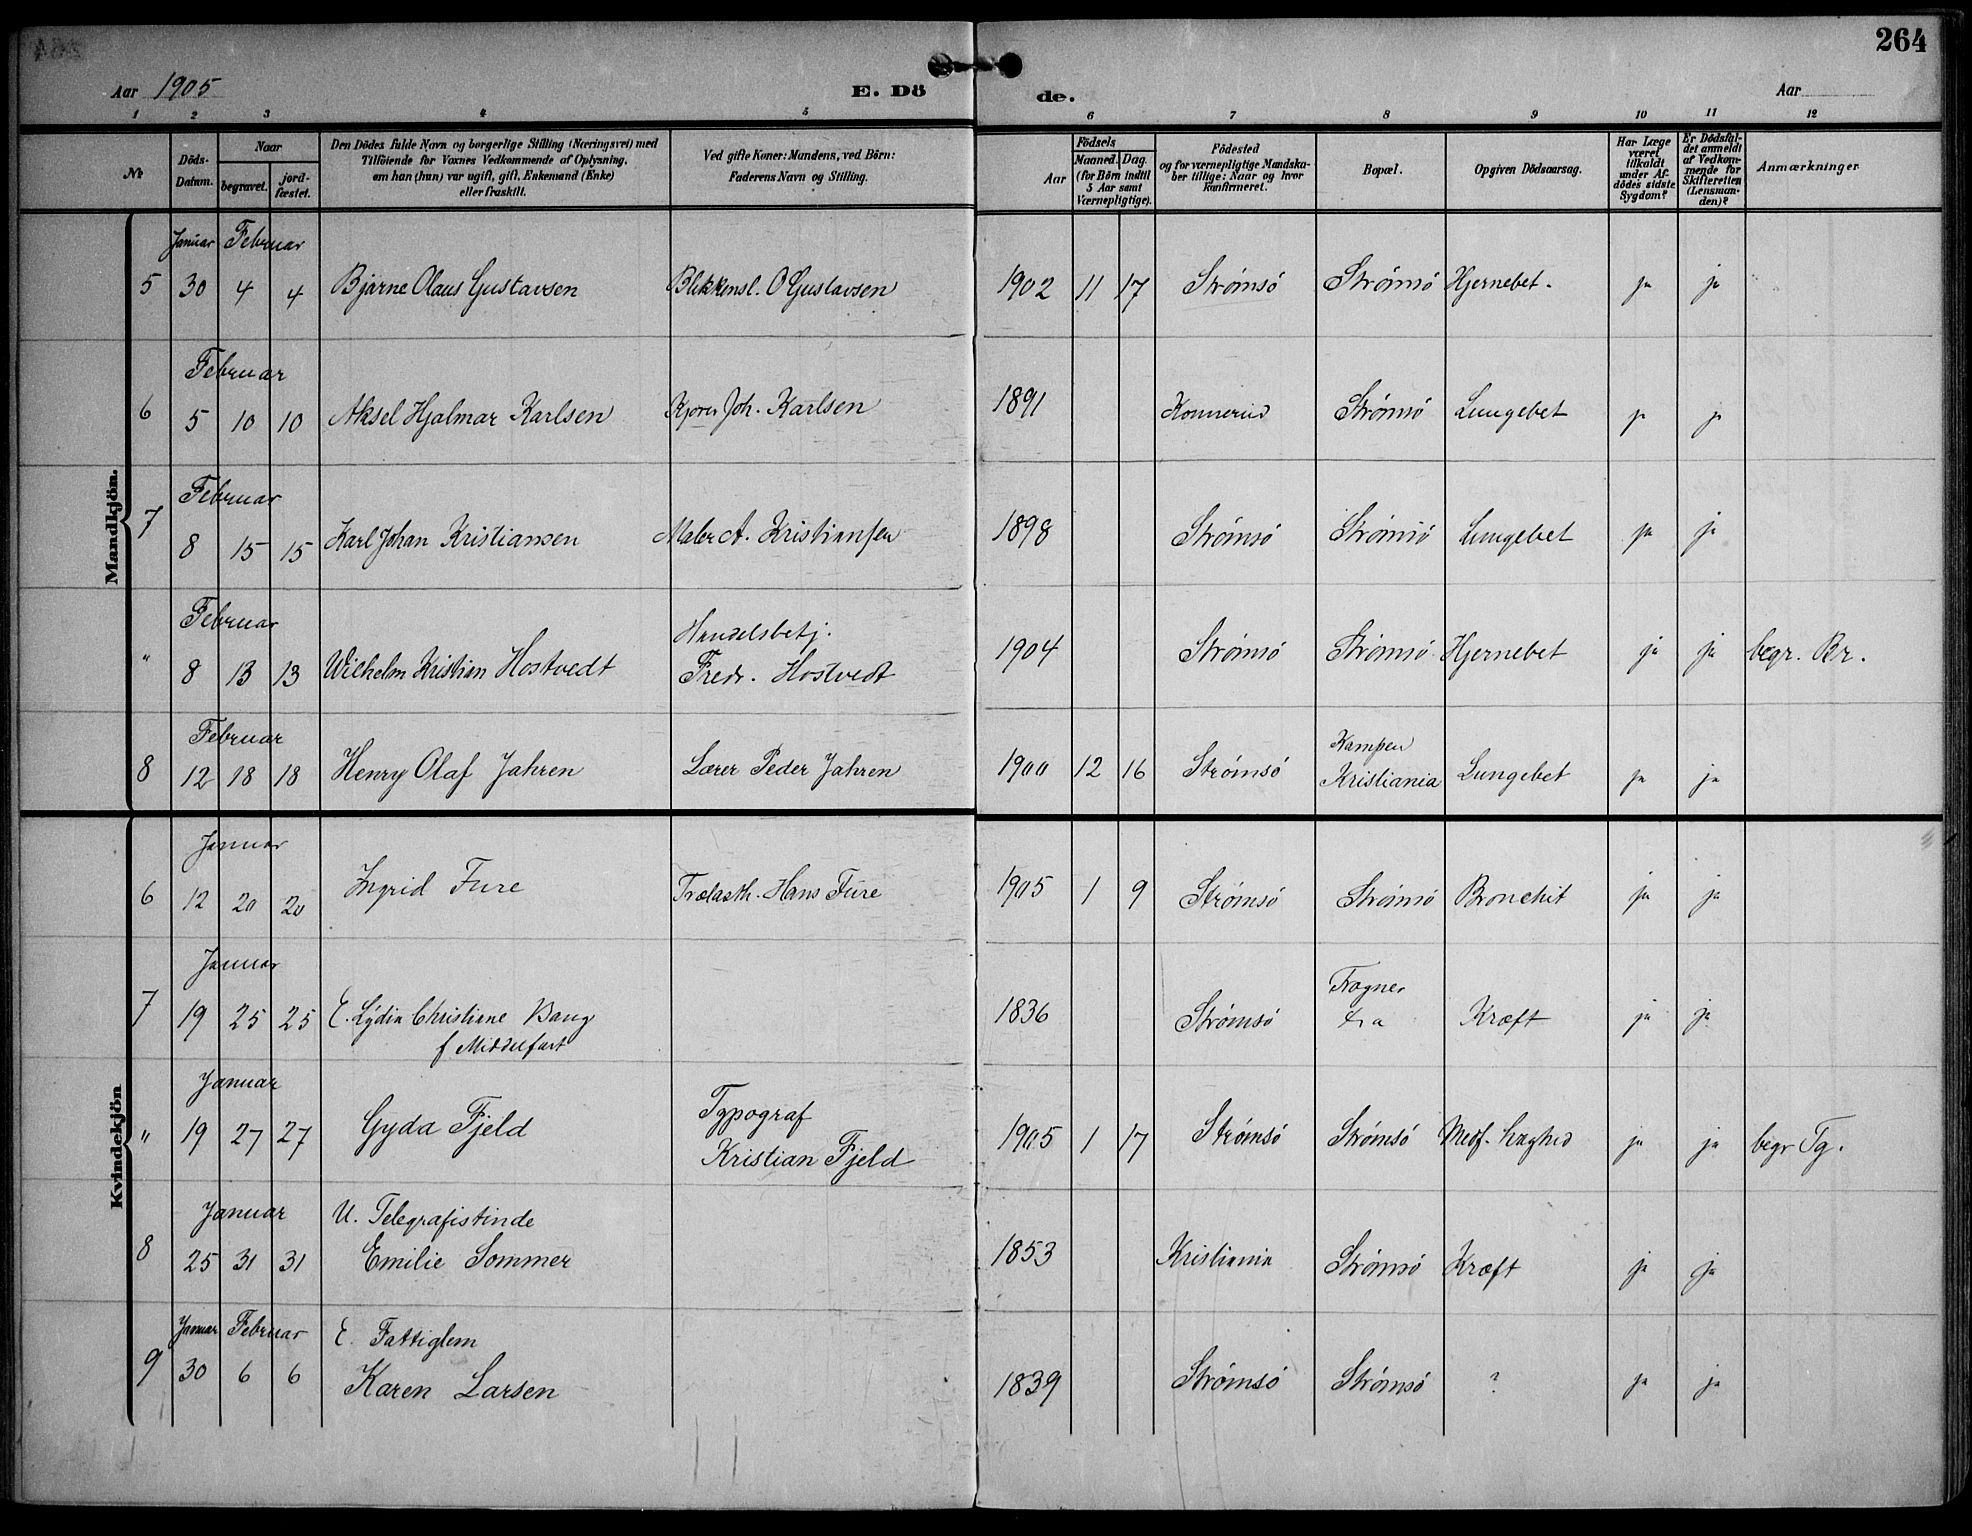 264
Aar 1905 E. Dö de. Aar
1 2 3 4 5 6 7 8 9 10 11 12
№ | Döds-Datum. | Naar begravet. | jord-fæstet. | Den Dödes fulde Navn og borgerlige Stilling (Næringsvei) med Tilföiende for Voxnes Vedkommende af Oplysning, om han (hun) var ugift, gift, Enkemand (Enke) eller fraskilt. | Ved gifte Koner: Mandens, ved Börn: Faderens Navn og Stilling. | Födsels Aar | Maaned. Dag. (for Börn indtil 5 Aar samt Værnepligtige). | Födested og for værnepligtige Mandska-ber tillige: Naar og hvor konfirmeret. | Bopæl. | Opgiven Dödsaarsag. | Har Læge været tilkaldt under Af-dödes sidste Sygdom? | Er Dödsfal-det anmeldt af Vedkom-mende for Skifteretten (Lensman-den)? | Anmærkninger
Mandkjön.
Januar Februar
5 30 4 4 Bjarne Olaus Gustavsen Blikkensl. O Gustavsen 1902 11 17 Strømsö Strømsö Hjernebet. ja ja
Februar
6 5 10 10 Aksel Hjalmar Karlsen Kjører Joh. Karlsen 1891 Konnerud Strømsö Lungebet ja ja
Februar
7 8 15 15 Karl Johan Kristiansen Maler A. Kristiansen 1898 Strømsö Strømsö Lungebet ja ja
Februar Handelsbetj.
" 8 13 13 Wilhelm Kristian Hostvedt Fredr. Hostvedt 1904 Strømsö Strømsö Hjernebet ja ja begr. Br.
Februar Kampen
8 12 18 18 Henry Olaf Jahren Lærer Peder Jahren 1900 12 16 Strømsö Kristiania Lungebet ja ja
Kvindekjön
Januar
6 12 20 20 Ingrid Fure Trælasth. Hans Fure 1905 1 9 Strømsö Strømsö Bronchit ja ja
Januar Frogner
7 19 25 25 E. Lydia Christiane Baug 1836 Strømsö Kra Kræft ja ja
f Middelfart
Januar Typograf
" 19 27 27 Gyda Fjeld Kristian Fjeld 1905 1 17 Strømsö Strømsö Medf. Svaghed ja ja begr Tg.
Januar U. Telegrafistinde
8 25 31 31 Emilie Sommer 1853 Kristiania Strømsö Kræft ja ja
Januar Februar E. Fattiglem
9 30 6 6 Karen Larsen 1839 Strømsö Strømsö ? ja ja